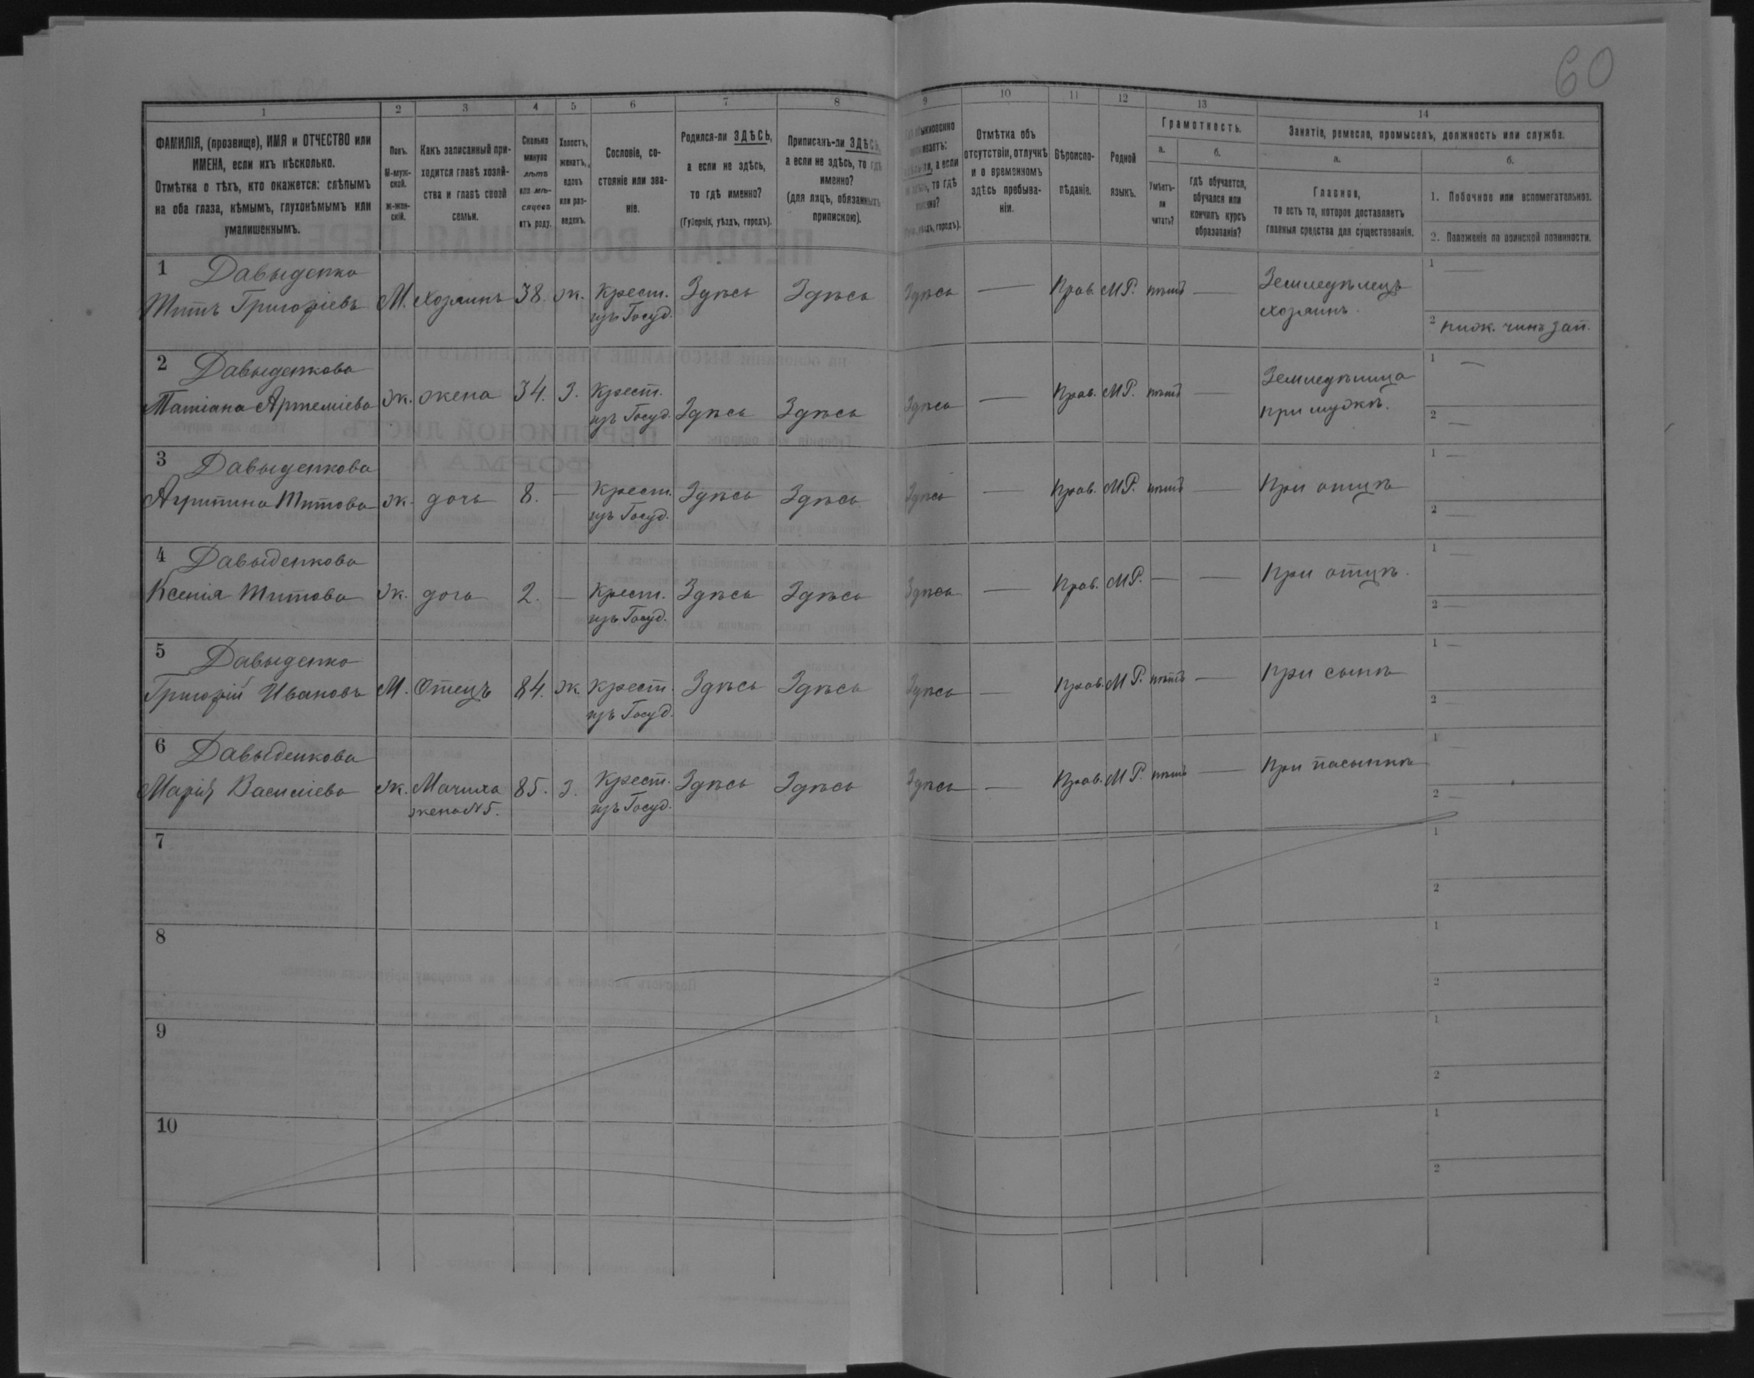 60
1 2 3 4 5 6 7 8 9 10 11 12 13 14
ФАМИЛІЯ, (прозвище), ИМЯ и ОТЧЕСТВО или
ИМЕНА, если ихъ нѣсколько.
Отмѣтка о тѣхъ, кто окажется: слѣпымъ
на оба глаза, нѣмымъ, глухонѣмымъ или
умалишеннымъ.
Полъ.
М-муж-
ской.
ж-жен-
скій.
Какъ записанный при-
ходится главѣ хозяй-
ства и главѣ своей
семьи.
Сколько
минуло
лѣтъ
или мѣ-
сяцевъ
отъ роду.
Холостъ,
женатъ,
вдовъ
или раз-
веденъ.
Сословіе, со-
стояніе или зва-
ніе.
Родился-ли ЗДѢСЬ,
а если не здѣсь,
то гдѣ именно?
(Губернія, уѣздъ, городъ).
Приписанъ-ли ЗДѢСЬ,
а если не здѣсь, то гдѣ
именно?
(для лицъ, обязанныхъ
припискою).
а если
то гдѣ
уѣздъ, городъ).
Отмѣтка объ
отсутствіи, отлучкѣ
и о временномъ
здѣсь пребыва-
ніи.
Вѣроиспо-
вѣданіе.
Родной
языкъ.
Грамотность.
а.
Умѣетъ-
ли
читать?
б.
гдѣ обучается,
обучался или
кончилъ курсъ
образованія?
Занятіе, ремесло, промыселъ, должность или служба.
а.
Главное,
то есть то, которое доставляетъ
главныя средства для существованія.
б.
1. Побочное или вспомогательное.
2. Положеніе по воинской повинности.
1 Давыденко
Титъ Григоріевъ М. хозяинъ 38. ж. Крест. изъ Госуд. Здѣсь Здѣсь Здѣсь — Прав. МР. нѣтъ — Земледѣлецъ хозяинъ. 1 —
2 ниж. чинъ зап.
2 Давыденкова
Татіана Артеміева ж. жена 34. З. Крест. изъ Госуд. Здѣсь Здѣсь Здѣсь — Прав. МР. нѣтъ — при мужѣ. 1 —
2 —
3 Давыденкова
Титова ж. дочь 8. — Крест. изъ Госуд. Здѣсь Здѣсь Здѣсь — Прав. МР. нѣтъ — При отцѣ 1 —
2 —
4 Давыденкова
Ксенія Титова ж. дочь 2. — Крест. изъ Госуд. Здѣсь Здѣсь Здѣсь — Прав. МР. — — При отцѣ. 1 —
2 —
5 Давыденко
Григорій Ивановъ М. Отецъ 84. ж. Крест. изъ Госуд. Здѣсь Здѣсь Здѣсь — Прав. МР. нѣтъ — При сынѣ 1 —
2 —
6 Давыденкова
Марія Василіева ж. Мачиха жена №5. 85. З. Крест. изъ Госуд. Здѣсь Здѣсь Здѣсь — Прав. МР. нѣтъ — При пасынкѣ 1 —
2 —
7 1
2
8 1
2
9 1
2
10 1
2